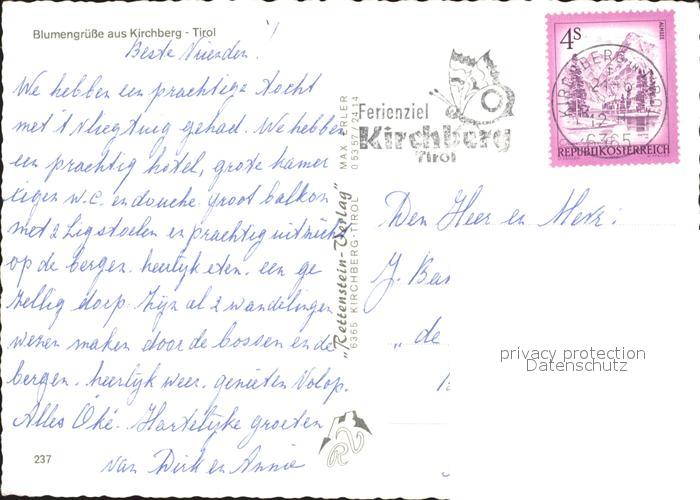 Blumengrüße aus Kirchberg - Tirol
Beste Vrienden!
We hebben een prachtige tocht
met 't vliegtuig gehad. We hebben
een prachtig hotel, grote kamer
eigen w.c. en douche. groot balkon
met 2 Ligstoelen en prachtig uitzicht
op de bergen. heerlijk eten. een ge
zellig dorp. Zijn al 2 wandelingen
wezen maken door de bossen en de
bergen. heerlijk weer. genieten volop.
Alles Oké. Hartelijke groeten
van Dirk en Annie
237
MAX ERLER
05357/2414
"Rettenstein-Verlag"
6365 KIRCHBERG-TIROL
RV
Ferienziel
Kirchberg
Tirol
4S
ALMSEE
REPUBLIK ÖSTERREICH
KIRCHBERG
6365
Den Heer en Mevr:
J.
"de
privacy protection
Datenschutz